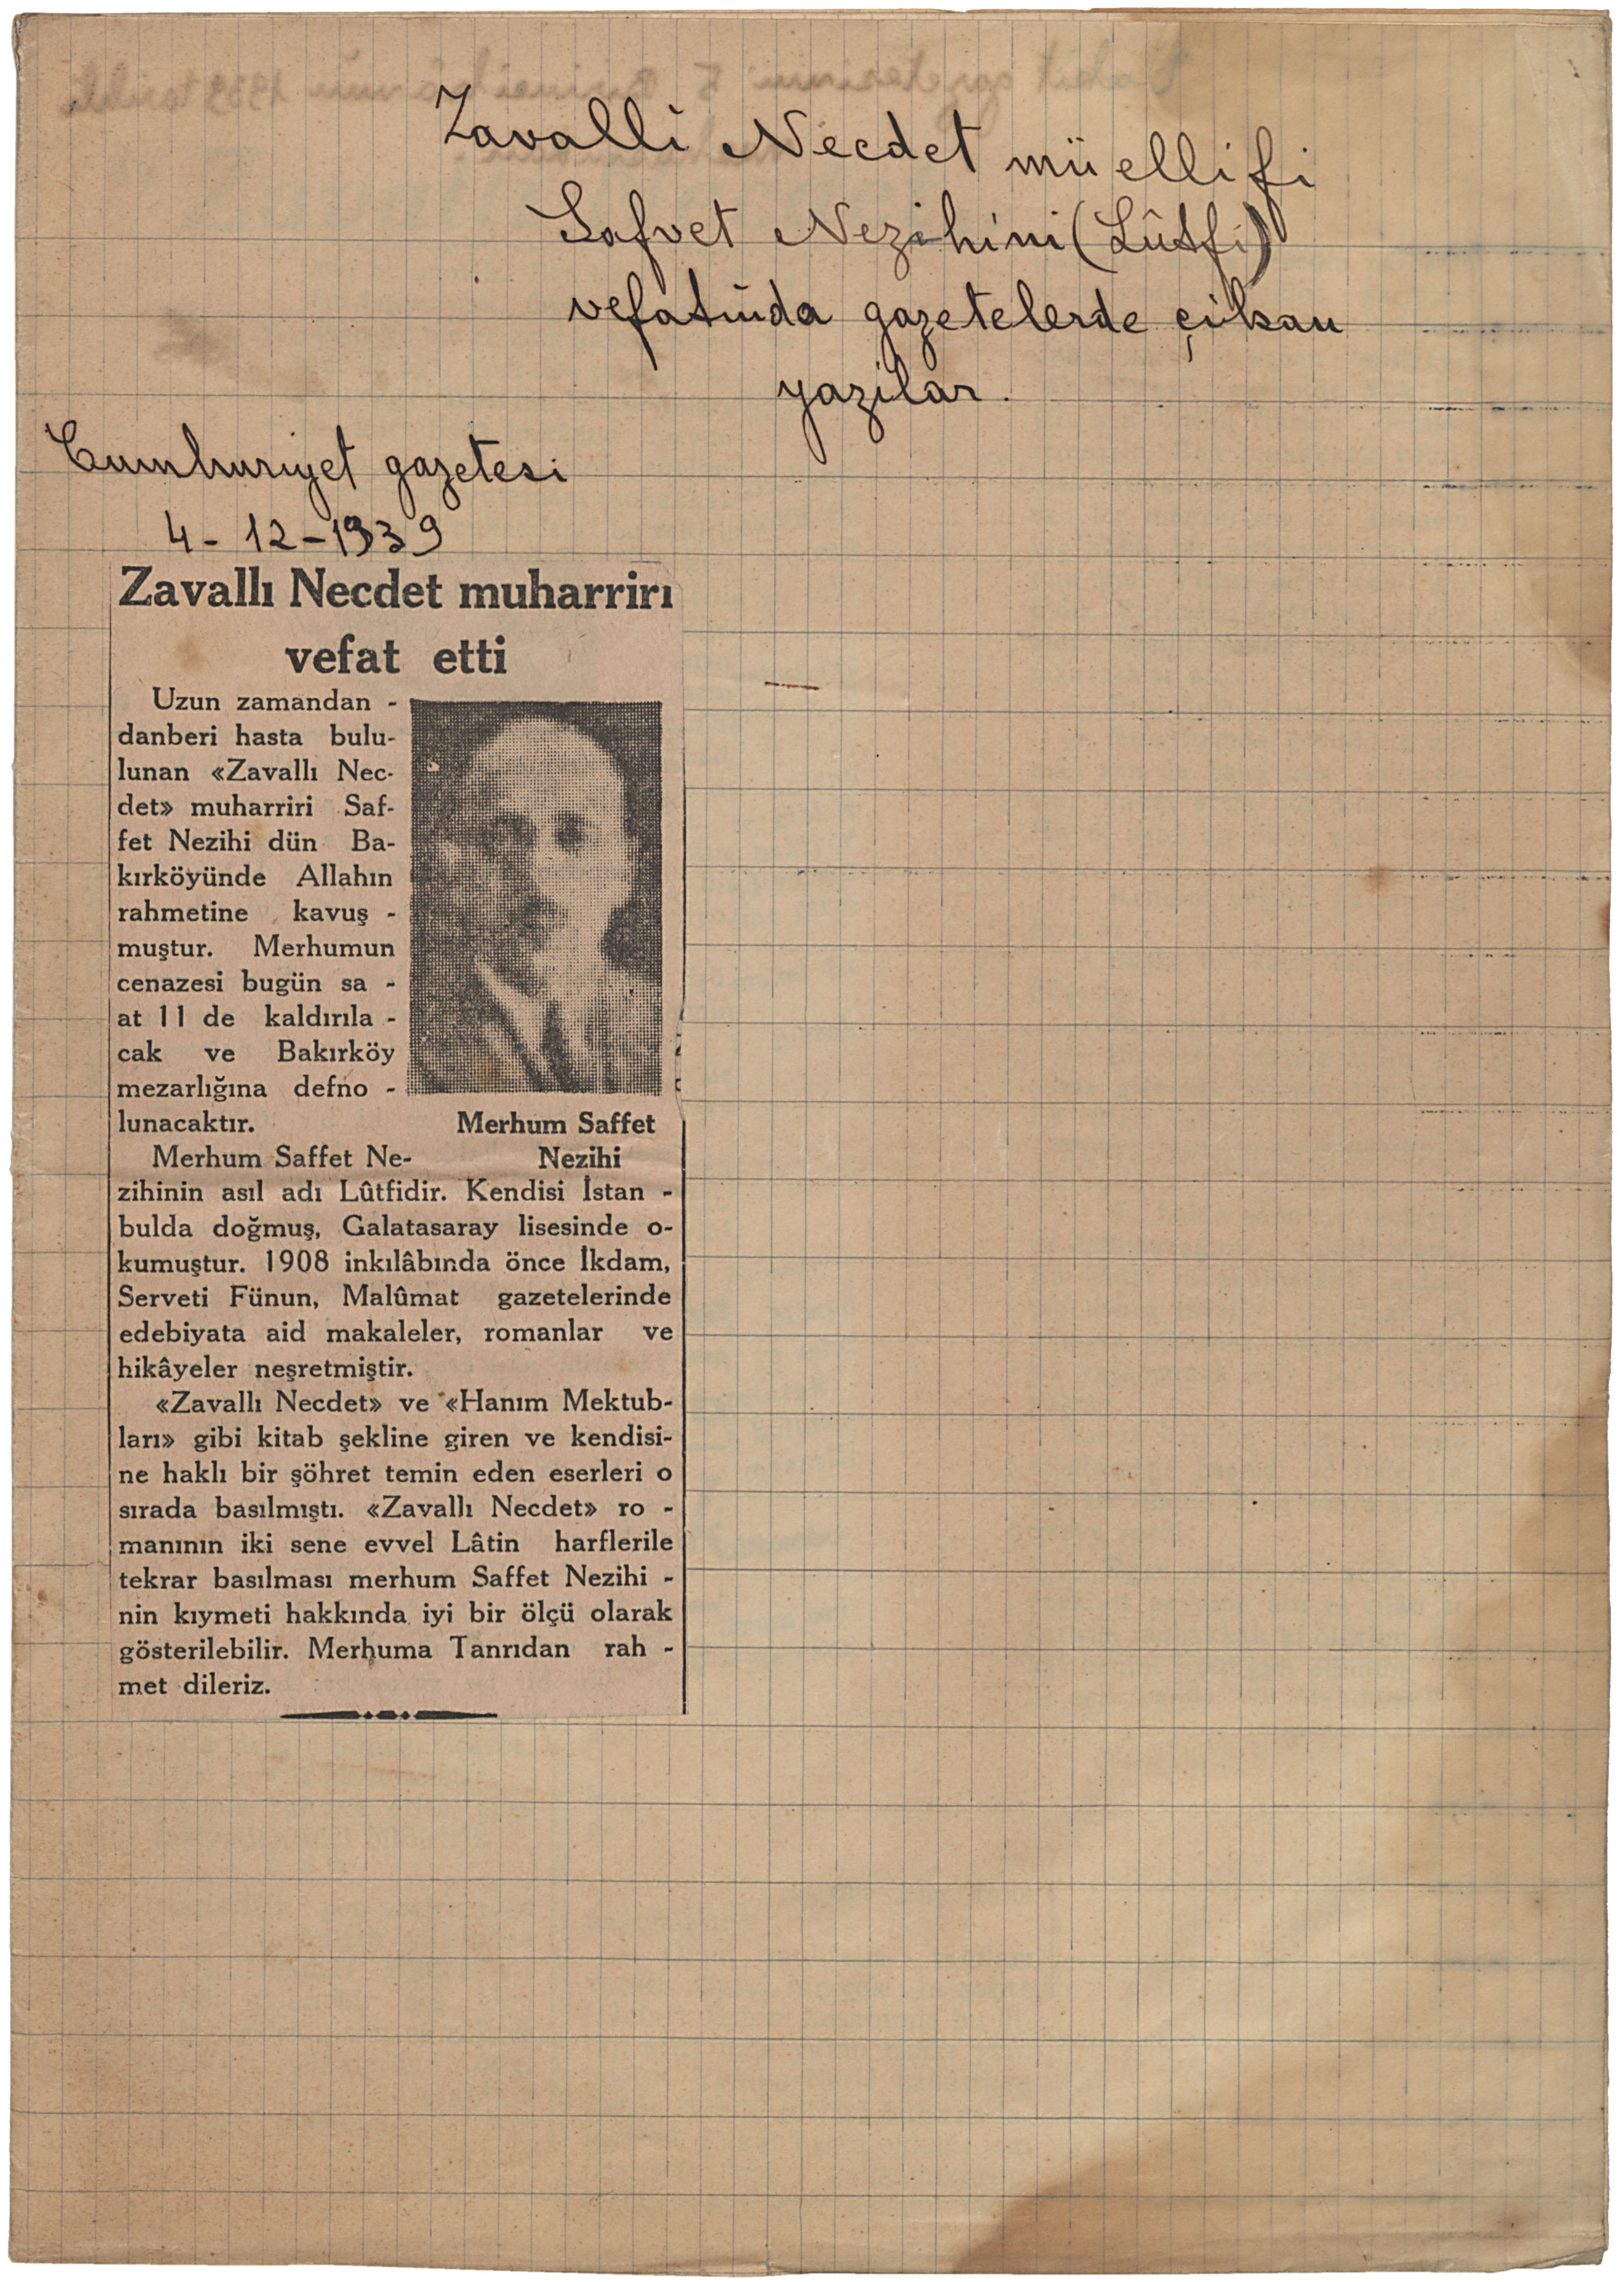 Zavalli Necdet müellifi
Safvet Nezihini (Lûtfi)
vefatında gazetelerde çikan
yazilar.
Cumhuriyet gazetesi
4 - 12 - 1939
Zavallı Necdet muharriri
vefat etti
Uzun zamandan -
danberi hasta bulu-
lunan «Zavallı Nec-
det» muharriri Saf-
fet Nezihi dün Ba-
kırköyünde Allahın
rahmetine kavuş -
muştur. Merhumun
cenazesi bugün sa -
at 11 de kaldırıla -
cak ve Bakırköy
mezarlığına defno -
lunacaktır.
Merhum Saffet
Nezihi
Merhum Saffet Ne-
zihinin asıl adı Lûtfidir. Kendisi İstan -
bulda doğmuş, Galatasaray lisesinde o-
kumuştur. 1908 inkılâbında önce İkdam,
Serveti Fünun, Malûmat gazetelerinde
edebiyata aid makaleler, romanlar ve
hikâyeler neşretmiştir.
«Zavallı Necdet» ve «Hanım Mektub-
ları» gibi kitab şekline giren ve kendisi-
ne haklı bir şöhret temin eden eserleri o
sırada basılmıştı. «Zavallı Necdet» ro -
manının iki sene evvel Lâtin harflerile
tekrar basılması merhum Saffet Nezihi -
nin kıymeti hakkında iyi bir ölçü olarak
gösterilebilir. Merhuma Tanrıdan rah -
met dileriz.